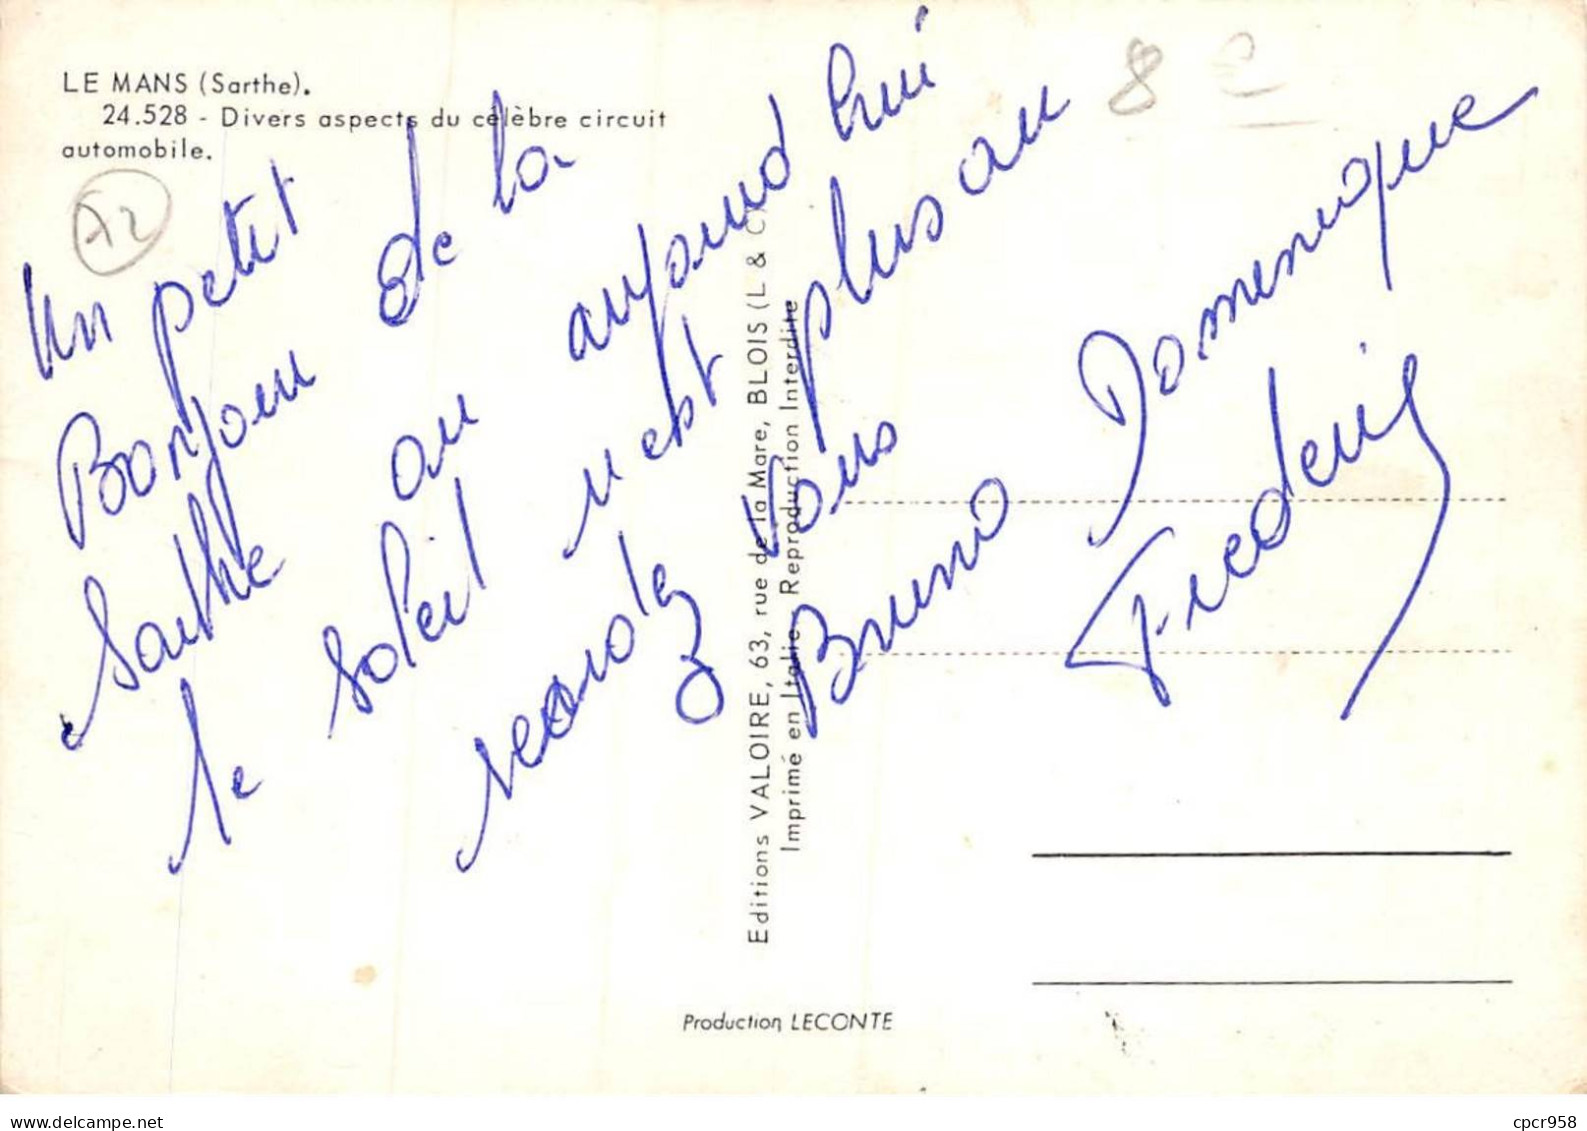 LE MANS (Sarthe).
24.528 - Divers aspects du célèbre circuit
automobile.
A2
8 €
Un petit
Bonjour de la
Sarthe ou aujourd'hui
le soleil n'est plus au
rendez vous
Bruno Domenique
Frederic
Editions VALOIRE, 63, rue de la Mare, BLOIS (L & C)
Imprimé en Italie Reproduction Interdite
Production LECONTE
www.delcampe.net
cpcr958